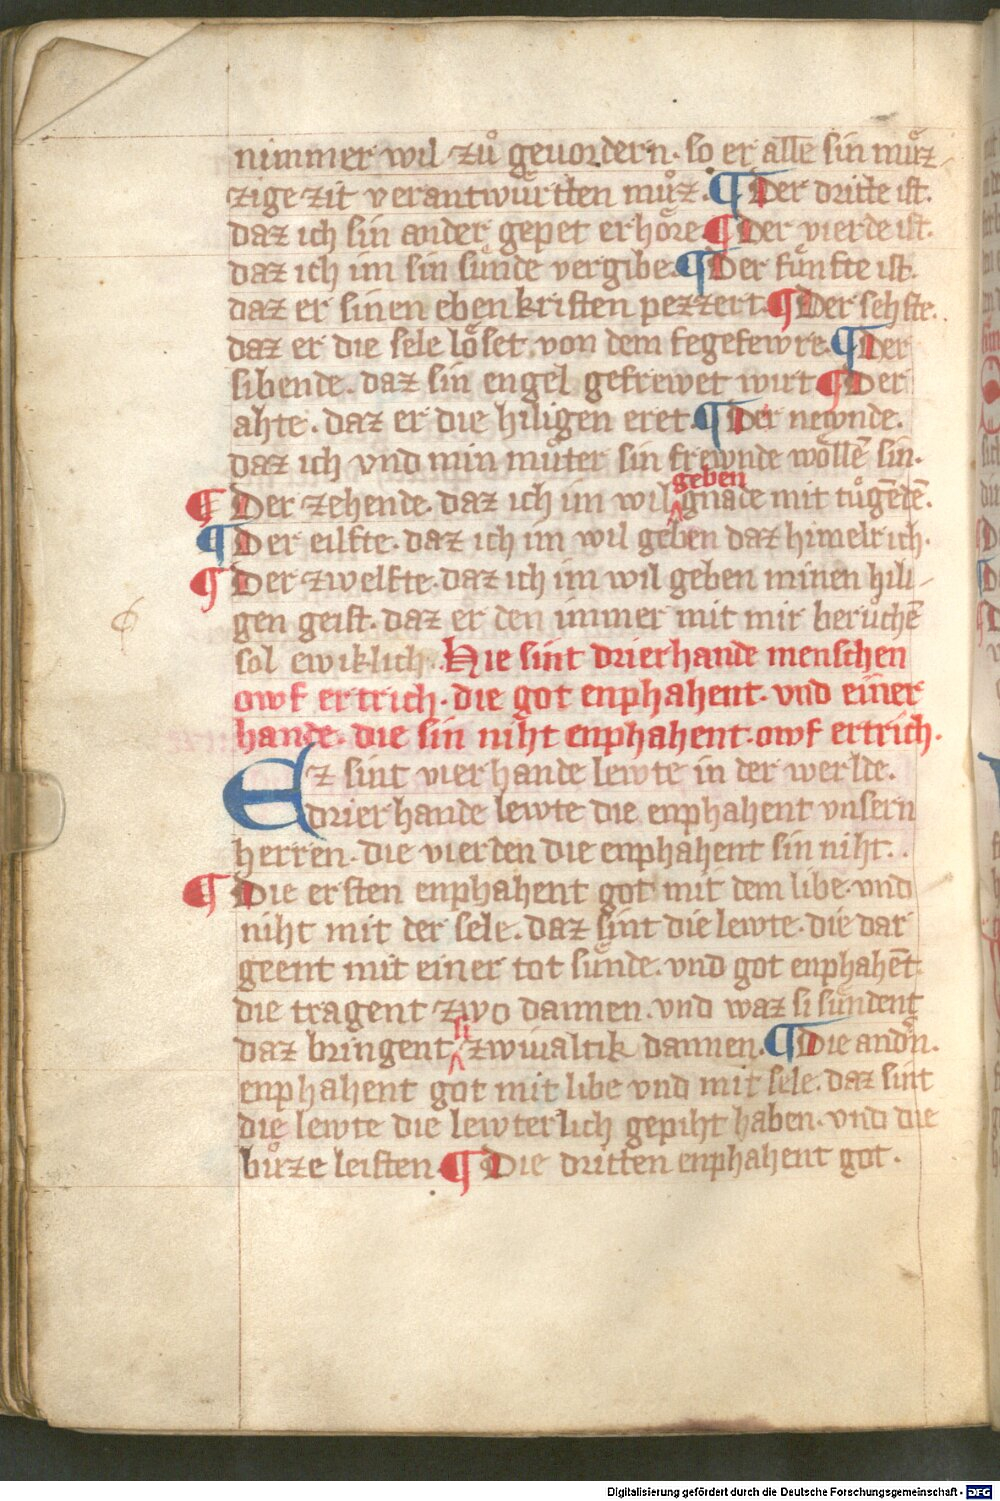 nimmer wil zuͦ geuordern. so er alle sin muͤz-
zige zit verantwuͤrtten muͦz. ¶ Der dritte ist.
daz ich sin ander gepet erhoͤre ¶ Der vierde ist.
daz ich im sin suͤnde vergibe. ¶ Der fuͤnfte ist.
daz er sinen ebenkristen pezzert. ¶ Der sehste.
daz er die sele loͤset. von dem fegefewre. ¶ Der
sibende. daz sin engel gefrewet wirt ¶ Der
ahte. daz er die hiligen eret. ¶ Der newnde.
daz ich vnd min muͦter sin frewnde woͤllē sin.
geben
¶ Der zehende. daz ich im wil gnade mit tuͦgēdē.
¶ Der eilfte. daz ich im wil geben daz himelrich.
¶ Der zwelfte. daz ich im wil geben minen hili-
gen geist. daz er den immer mit mir beruͦchē
sol ewiklich. Hie sint drierhande menschen
owf ertrich. die got enphahent. vnd einer
hande. die sin niht enphahent. owf ertrich.
Ez sint vierhande lewte in der werlde.
drierhande lewte die enphahent vnsern
herren. die vierden die enphahent sin niht..
¶ Die ersten enphahent got mit dem libe. vnd
niht mit der sele. daz sint die lewte. die dar
geent mit einer tot suͤnde. vnd got enphahēt.
die tragent zwo dannen. vnd waz si suͤndent
si
daz bringent zwiualtik dannen. ¶ Die andn̄.
enphahent got mit libe vnd mit sele. daz sint
die lewte die lewterlich gepiht haben. vnd die
buͦze leisten. ¶ Die dritten enphahent got.
Digitalisierung gefördert durch die Deutsche Forschungsgemeinschaft - DFG